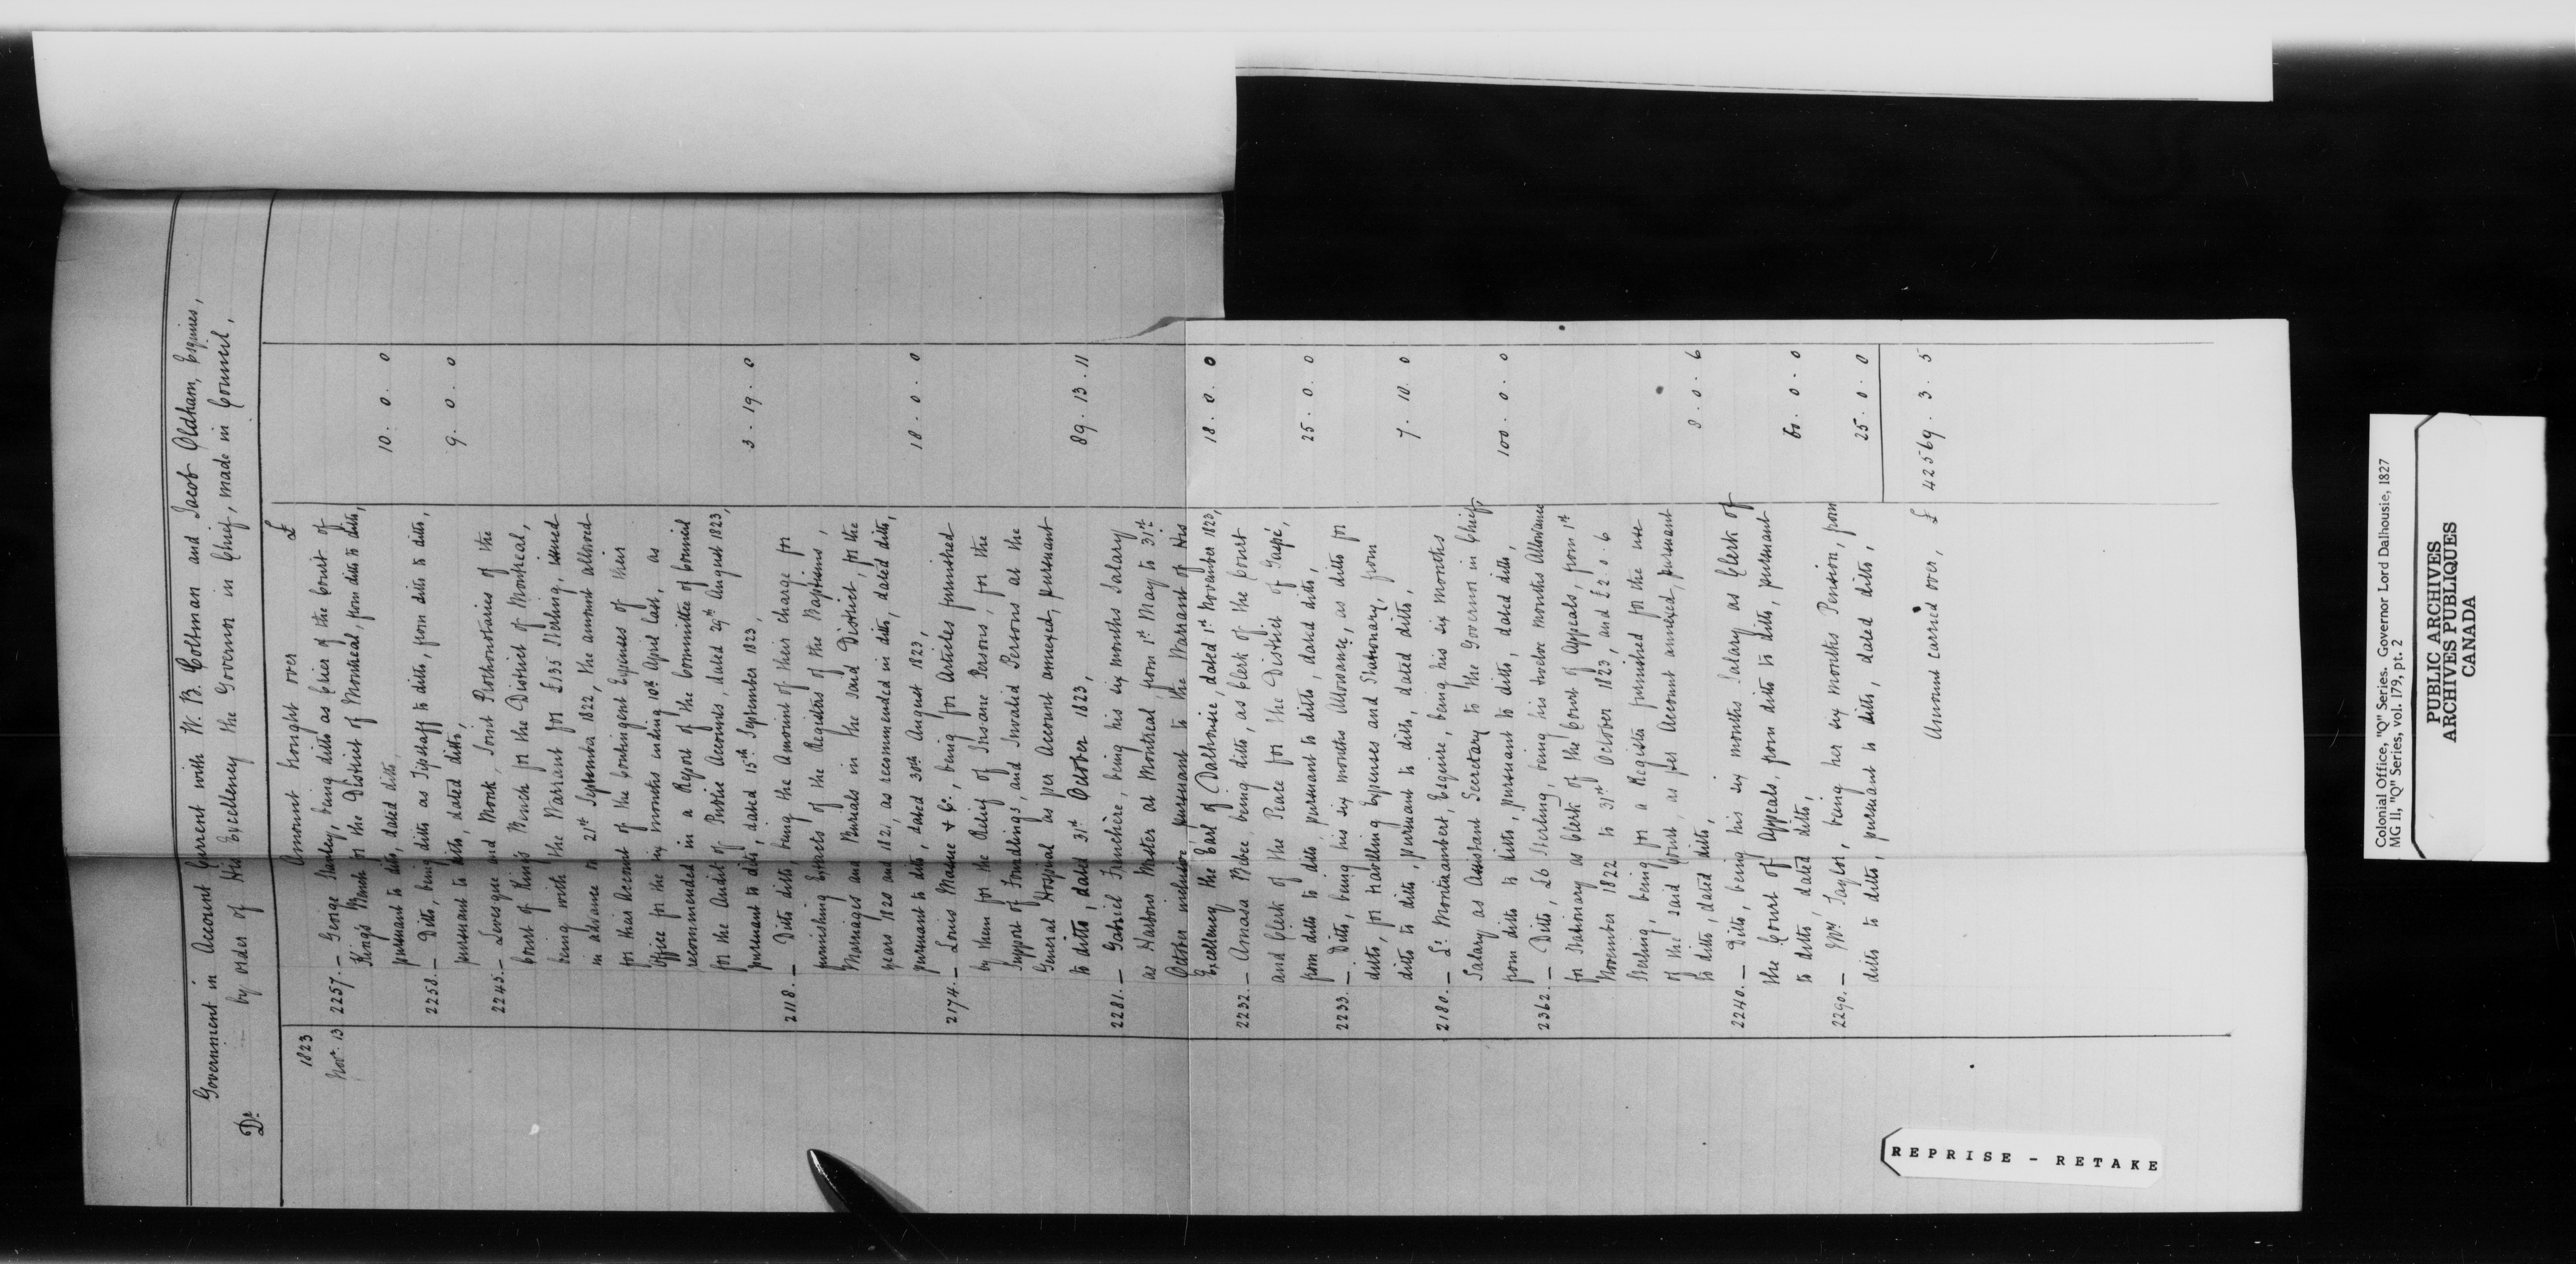 Government in Account Current with W. B. Coltman and Jacob Oldham, Esquires,
Dr. by order of His Excellency the Governor in Chief, made in Council,
1823 Amount brought over £
Novr. 13 2257. — George Stanley, being ditto as Crier of the Court of
King's Bench for the District of Montreal, from ditto to ditto,
pursuant to ditto, dated ditto, 10. 0. 0
2258. — Ditto, being ditto as Tipstaff to ditto, from ditto to ditto,
pursuant to ditto, dated ditto, 9. 0. 0
2245. — Levesque and Monk, Joint Prothonotaries of the
Court of King's Bench for the District of Montreal,
being with the Warrant for £135 Sterling, issued
in advance on 21st September 1822, the amount allowed
for their Account of the Contingent Expenses of their
Office for the six months ending 10th April last, as
recommended in a Report of the Committee of Council
for the Audit of Public Accounts, dated 29th August 1823,
pursuant to ditto, dated 15th September 1823, 3. 19. 0
2118. — Ditto ditto, being the Amount of their charge for
furnishing Extracts of the Registers of the Baptisms,
Marriages and Burials in the said District, for the
years 1820 and 1821, as recommended in ditto, dated ditto,
pursuant to ditto, dated 30th August 1823, 18. 0. 0
2174. — Louis Marie & C., being for Articles furnished
by them for the Relief of Insane Persons, for the
Support of Foundlings, and Invalid Persons at the
General Hospital as per Account annexed, pursuant
to ditto, dated 31st October 1823, 89. 13. 11
2281. — Gabriel Franchère, being his six months Salary
as Harbour Master at Montreal from 1st May to 31st
October inclusive pursuant to the Warrant of His
Excellency the Earl of Dalhousie, dated 1st November 1823, 18. 0. 0
2232. — Amasa Bebee, being ditto, as Clerk of the Court
and Clerk of the Peace for the District of Gaspé,
from ditto to ditto, pursuant to ditto, dated ditto, 25. 0. 0
2233. — Ditto, being his six months Allowance, as ditto for
ditto, for travelling Expenses and Stationary, from
ditto to ditto, pursuant to ditto, dated ditto, 7. 10. 0
2180. — Ls. Montizambert, Esquire, being his six months
Salary as Assistant Secretary to the Governor in Chief,
from ditto to ditto, pursuant to ditto, dated ditto, 100. 0. 0
2362. — Ditto, £6 Sterling, being his twelve months Allowance
for Stationary as Clerk of the Court of Appeals, from 1st
November 1822 to 31st October 1823, and £2.0.6
Sterling, being for a Register furnished for the use
of the said Court, as per Account annexed, pursuant
to ditto, dated ditto, 8. 0. 6
2240. — Ditto, being his six months Salary as Clerk of
the Court of Appeals, from ditto to ditto, pursuant
to ditto, dated ditto, 60. 0. 0
2290. — Mrs. Taylor, being her six months Pension, from
ditto to ditto, pursuant to ditto, dated ditto, 25. 0. 0
Amount carried over, £ 42569. 3. 5
REPRISE - RETAKE
Colonial Office, "Q" Series. Governor Lord Dalhousie, 1827
MG 11, "Q" Series, vol. 179, pt. 2
PUBLIC ARCHIVES
ARCHIVES PUBLIQUES
CANADA